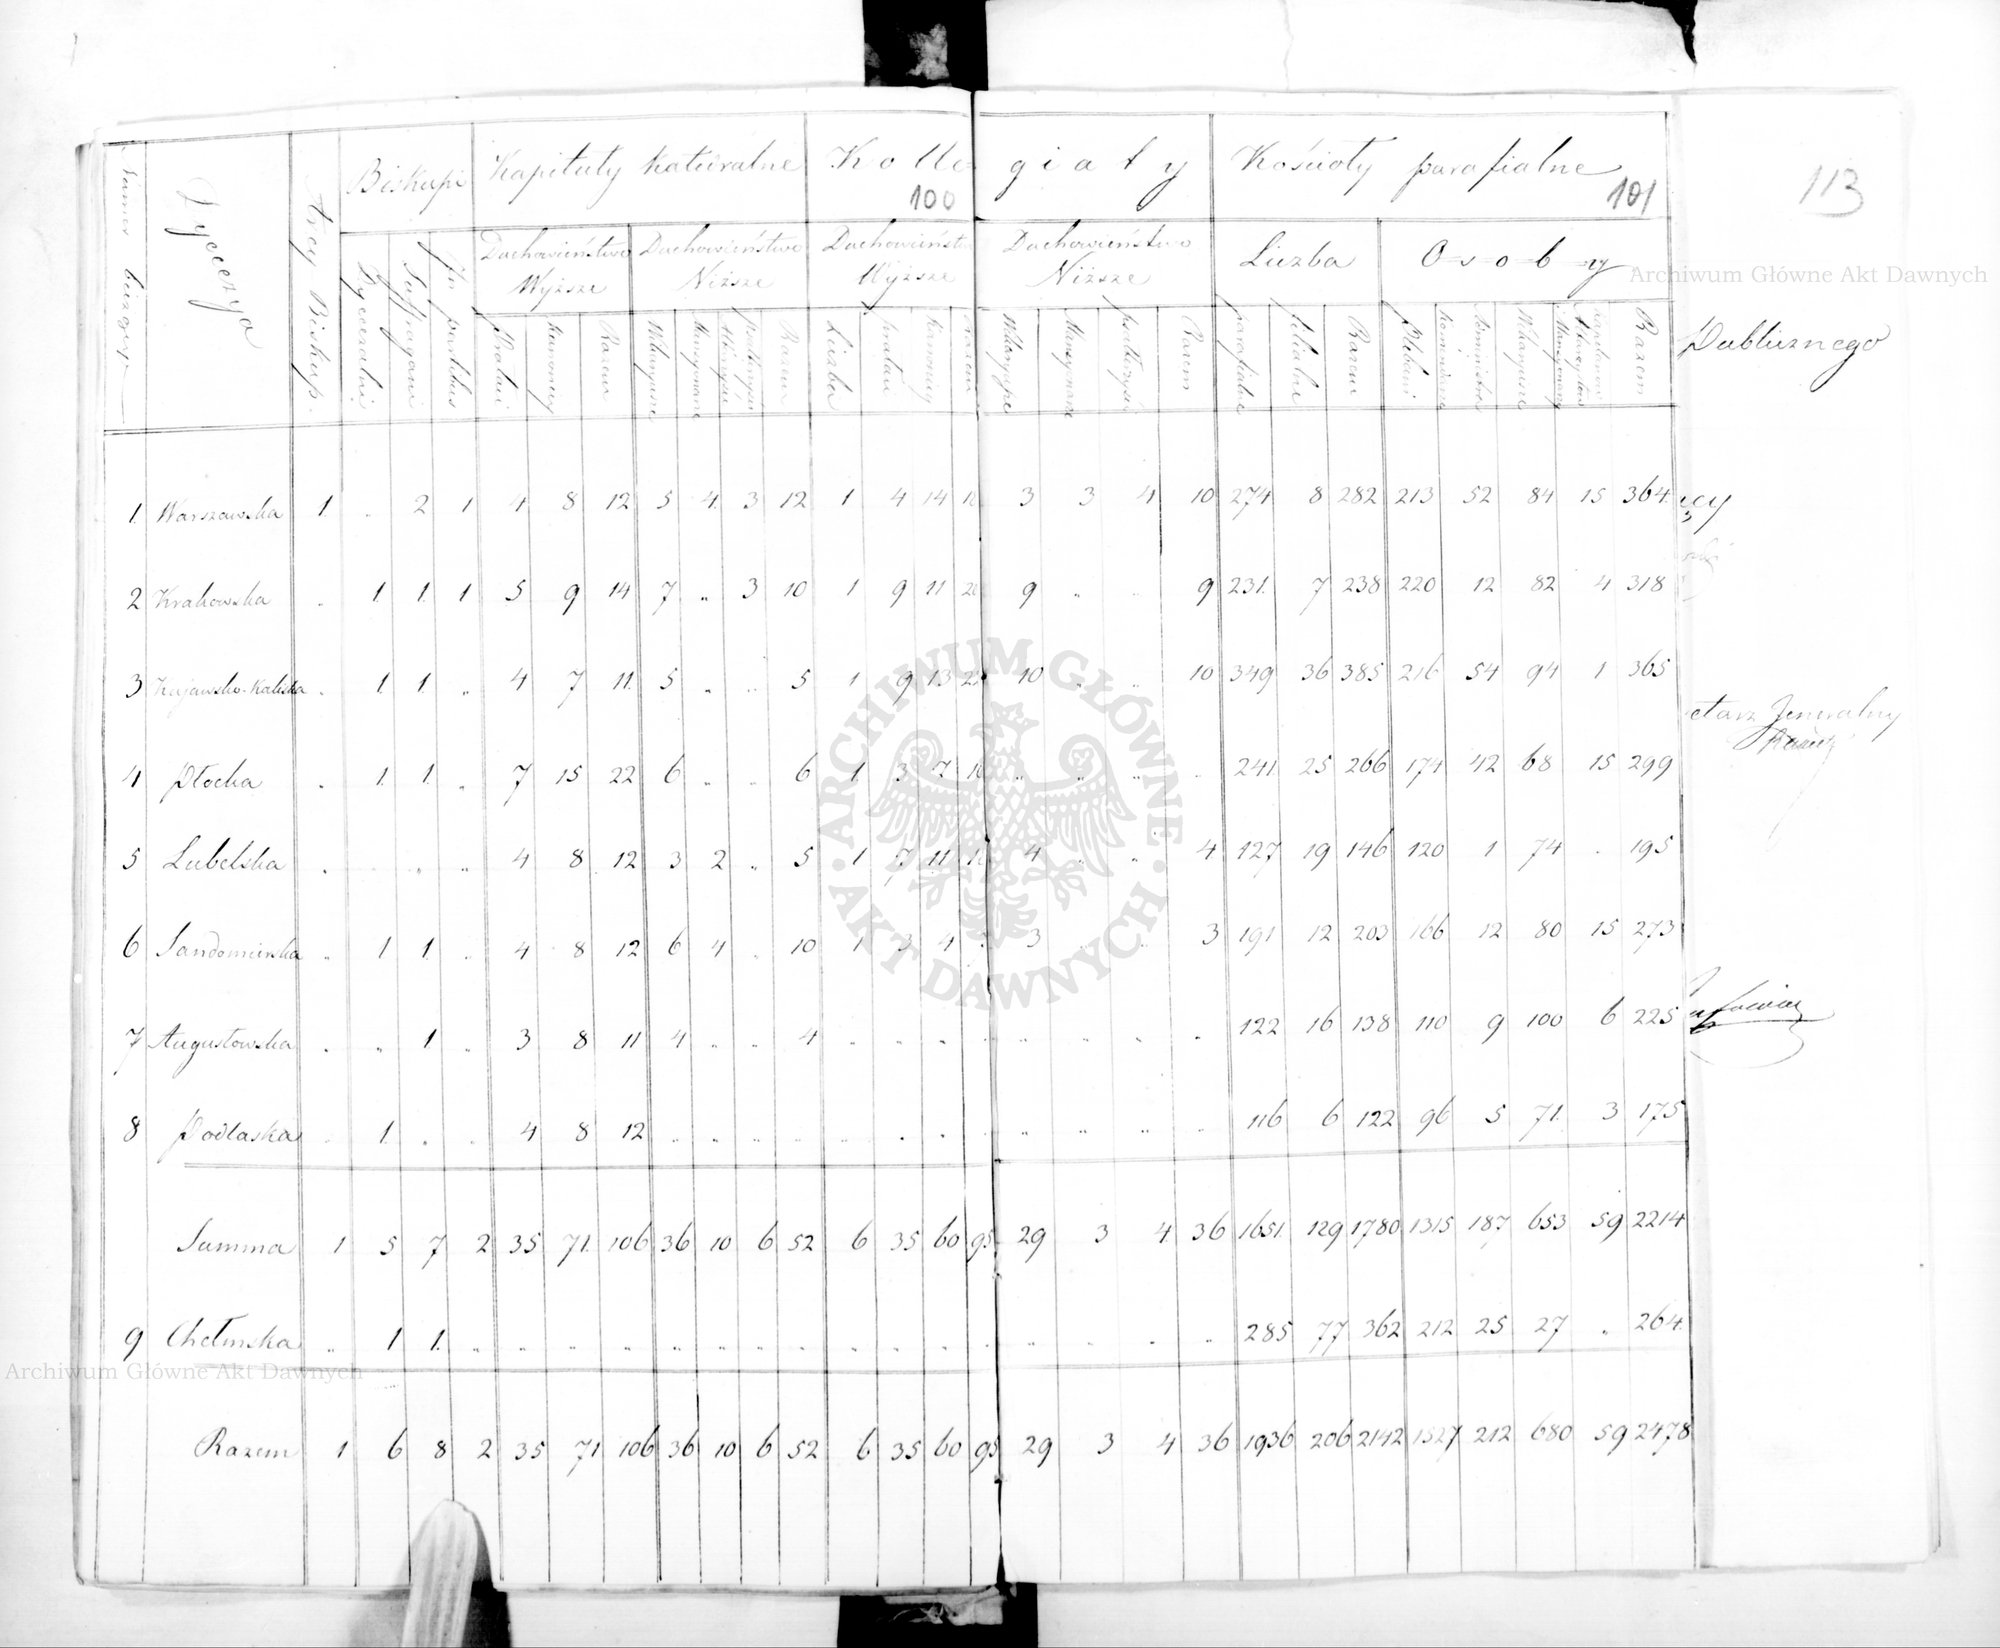 Biskupi Kapituły katedralne Kolle giaty Kościoły parafialne
100 101 113
Numer bieżący Dyecezya Arcy Biskup.
Duchowieństwo Wyższe Duchowieństwo Niższe Duchowieństwo Wyższe Duchowieństwo Niższe Liczba Osoby
Dyecezalni Suffragani In partibus Prałaci Kanonicy Razem Wikaryusze Mansyonarze Razem Liczba Prałaci Kanonicy Razem Mansyonarze psałterzyści Razem parafialne filialne Razem Plebani Wikaryusze Razem
Archiwum Główne Akt Dawnych
Publicznego
1 Warszawska 1. „ 2 1 4 8 12 5 4 3 12 1 4 14 3 3 4 10 274 8 282 213 52 84 15 364
2 Krakowska „ 1. 1. 1 5 9 14 7 „ 3 10 1 9 11 20 9 „ „ 9 231. 7 238 220 12 82 4 318
3 Kujawsko-Kaliska „ 1. 1. „ 4 7 11. 5 „ „ 5 1 9 13 10 „ „ 10 349 36 385 216 54 94 1 365
4 Płocka „ 1. 1. „ 7 15 22 6 „ „ 6 1. 3 7 10 „ „ „ „ 241. 25 266 174 42 68 15 299
5 Lubelska „ „ „ „ 4 8 12 3 2 „ 5 1 7 11 4 „ „ 4 127 19 146 120 1 74 „ 195
6 Sandomierska „ 1 1. „ 4 8 12 6 4 „ 10 1 3 4 3 „ „ 3 191 12 203 166 12 80 15 273
7 Augustowska „ „ 1. „ 3 8 11 4 „ „ 4 „ „ „ „ „ „ „ „ 122 16 138 110 9 100 6 225
8 Podlaska „ 1. „ „ 4 8 12 „ „ „ „ „ „ „ „ „ „ „ „ 116 6 122 96 5 71. 3 175
Summa 1 5 7 2 35 71. 106 36 10 6 52 6 35 60 95 29 3 4 36 1651. 129 1780 1315 187 653 59 2214
9 Chełmska „ 1 1. „ „ „ „ „ „ „ „ „ „ „ „ „ „ „ „ 285 77 362 212 25 27 „ 264
Razem 1 6 8 2 35 71 106 36 10 6 52 6 35 60 95 29 3 4 36 1936 206 2142 1527 212 680 59 2478
etarz Jeneralny
ARCHIWUM GŁÓWNE
AKT DAWNYCH
Archiwum Główne Akt Dawnych